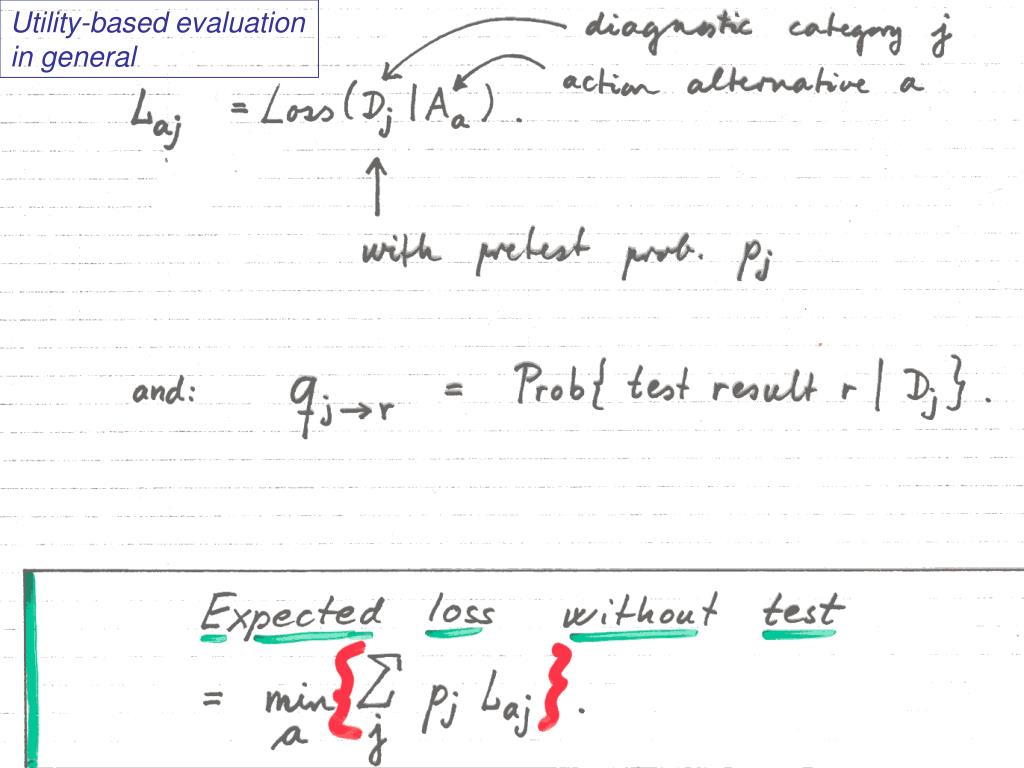 Utility-based evaluation
in general
diagnostic category j
action alternative a
L_aj = Loss(D_j | A_a).
with pretest prob. p_j
and: q_j→r = Prob{ test result r | D_j }.
Expected loss without test
= min_a { ∑_j p_j L_aj }.